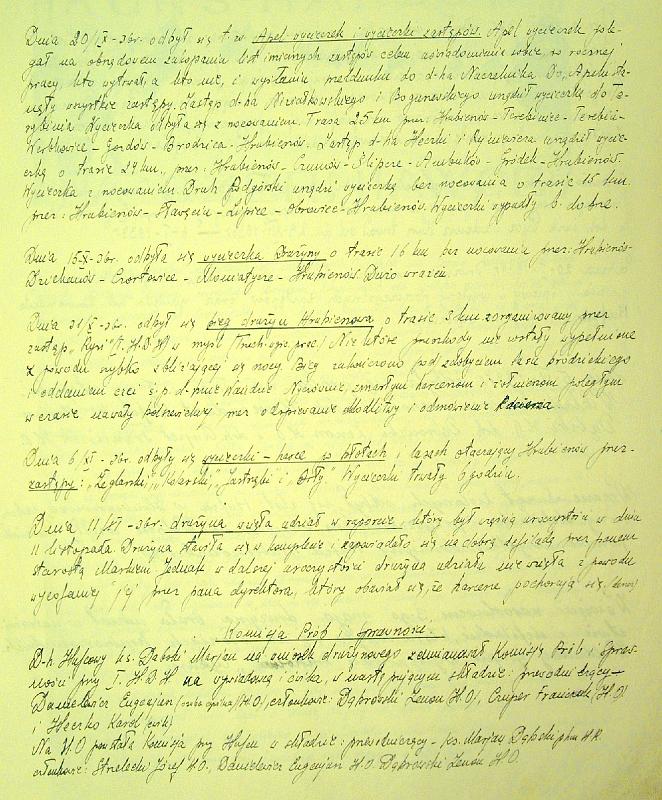 Dnia 20/IX-36r. odbył się t.zw. Apel wycieczek i wycieczki zastępów. Apel wycieczek pole-
gał na obrzędowem zakopaniu list imiennych zastępów celem uświadomienia sobie, po rocznej
pracy, kto wytrwał a kto nie, i wysłaniu meldunku do d-ha Naczelnika. Do Apelu sta-
nęły wszystkie zastępy. Zastęp d-ha i Bogunowskiego urządził wycieczkę do Te-
rebinia. Wycieczka odbyła się z nocowaniem. Trasa 25 km. prz: Hrubieszów - Terebiniec - Terebiń -
Werbkowice - Gozdów - Brodzica - Hrubieszów. Zastęp d-ha Heczki i urządził wyciecz-
kę o trasie 24 km., prz: Hrubieszów - - Ślipcze - - Gródek - Hrubieszów.
Wycieczka z nocowaniem. Druh Podgórski urządził wycieczkę bez nocowania o trasie 15 km.
prz: Hrubieszów - Sławęcin - Lipice - Obrowiec - Hrubieszów. Wycieczki wypadły b. dobrze.
Dnia 15-X-36r. odbyła się wycieczka Drużyny o trasie 16 km bez nocowania prz: Hrubieszów-
Dziekanów - Czortowice - Moniatycze - Hrubieszów. Dużo wrażeń.
Dnia 31/X-36r. odbył się bieg drużyn Hrubieszowa o trasie 3 km zorganizowany przez
zastęp "Rysi" I.H.D.H w myśl Niektóre przeszkody nie zostały wypełnione
z powodu szybko zbliżającej się nocy. Bieg zakończono pod zdobyciem lasu grodzickiego
i oddaniem czci ś.p. d-hnie Wandzie, zmarłym harcerzom i żołnierzom poległym
w czasie nawały bolszewickiej przez odśpiewanie Modlitwy i odmówienie pacierza.
Dnia 6/XI-36r. odbyły się wycieczki - harce po błotach i lasach otaczających Hrubieszów przez
zastępy: "Żeglarski," "Kolarski," "Jastrzębi" i "Orły". Wycieczki trwały 6 godzin.
Dnia 11/XI-36r. drużyna wzięła udział w raporcie, który był częścią uroczystości w dniu
11 listopada. Drużyna stawiła się w komplecie i zapowiadało się na dobrą defiladę przez panem
starostą Markiem. Jednak w dalszej uroczystości drużyna udziału nie wzięła z powodu
wycofania jej przez pana dyrektora, który obawiał się, że harcerze pochorują się.
Komisja Prób i Sprawności.
D-h Hufcowy ks. Dąbski Marjan na wniosek drużynowego zamianował Komisję Prób i Spraw-
ności przy I. H.D.H. na i ćwika, w następującym składzie: przewodniczący -
Danielewicz Eugenjusz (H.O) członkowie: Dąbrowski Zenon (H.O), Czuper Franciszek (H.O)
i Heczko Karol (ćwik)
Na H.O powstała Komisja przy Hufcu w składzie: przewodniczący - ks. Marjan Dąbski phm H.R.
członkowie: Strzelecki Józef H.O., Danielewicz Eugenjusz H.O. Dąbrowski Zenon H.O.